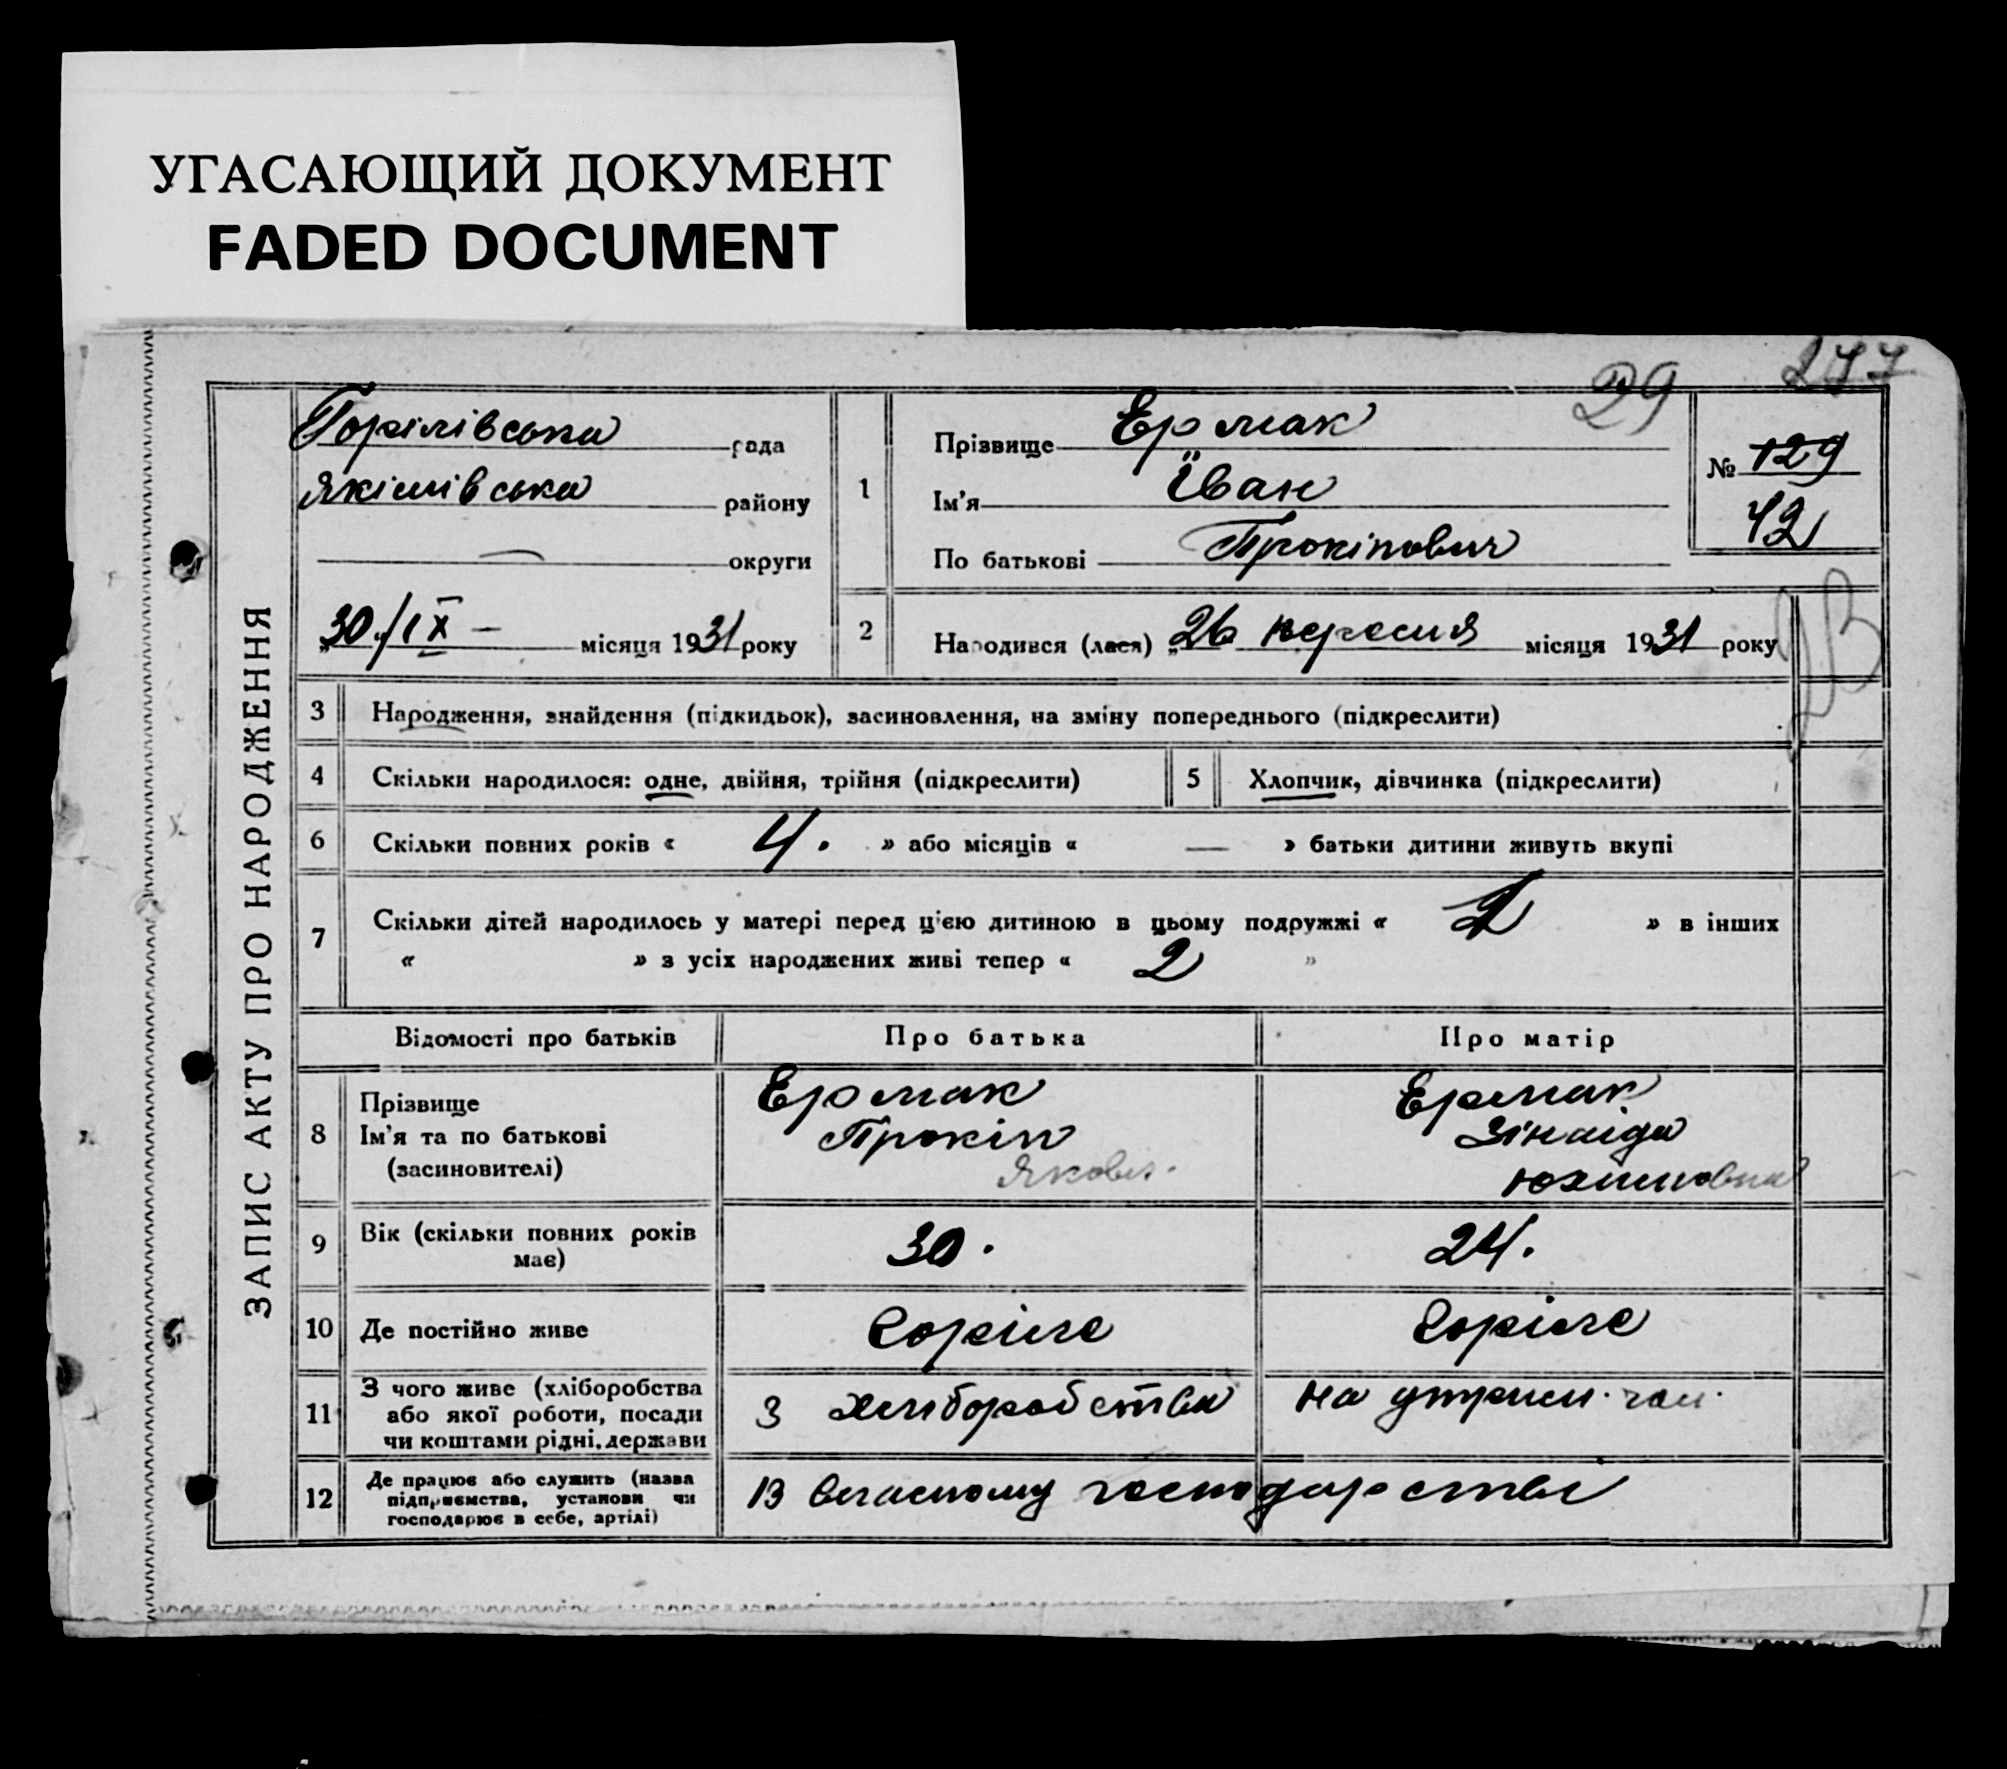 УГАСАЮЩИЙ ДОКУМЕНТ
FADED DOCUMENT
277
29
ЗАПИС АКТУ ПРО НАРОДЖЕННЯ
Горілівська рада
Якімівська району
— округи
„30/IX — місяця 1931 року
1
Прізвище Ермак
Ім'я Їван
По батькові Прокіпович
№ 129
42
2
Народився (лася) „26 вересня місяця 1931 року
3 Народження, знайдення (підкидьок), засиновлення, на зміну попереднього (підкреслити)
4 Скільки народилося: одне, двійня, трійня (підкреслити)
5 Хлопчик, дівчинка (підкреслити)
6 Скільки повних років « 4. » або місяців « — » батьки дитини живуть вкупі
7 Скільки дітей народилось у матері перед цією дитиною в цьому подружжі « » в інших
« » з усіх народжених живі тепер « 2 »
Відомості про батьків Про батька Про матір
8
Прізвище
Ім'я та по батькові
(засиновителі)
Ермак
Прокіп
Яков.
Ермак
Зінаіда
Юхимовна
9 Вік (скільки повних років
має)
30. 24.
10 Де постійно живе Горіле Горіле
11 З чого живе (хліборобства
або якої роботи, посади
чи коштами рідні, держави
З хліборобства
на утрим. чол.
12 Де працює або служить (назва
підприємства, установи чи
господарює в себе, артілі)
В власному господарстві